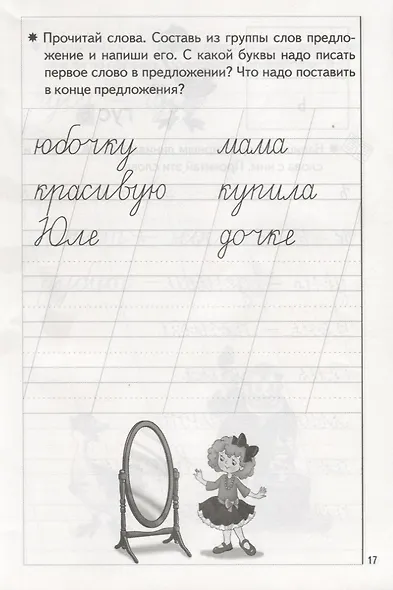 ✷ Прочитай слова. Составь из группы слов предло-
жение и напиши его. С какой буквы надо писать
первое слово в предложении? Что надо поставить
в конце предложения?
юбочку мама
красивую купила
Юле дочке
17